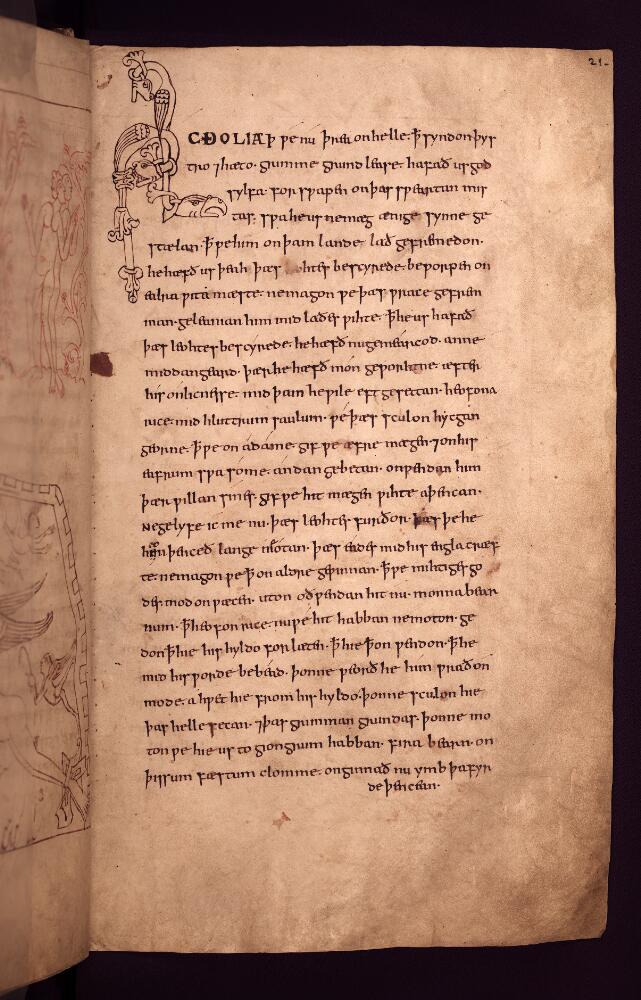 21.
ACÐOLIAꝥ ƿe nu þrea on helle· ꝥ syndon þys
tro ⁊ hæto· grimme grund lease· hafað us god
sylfa· for sƿapen on þas sƿeartan mis
tas· sƿa he us ne mæg ænige synne ge
stælan· ꝥ ƿe him on þam lande· lað gefremedon·
he hæfð us þeah þæs leohtes bescyrede· beƿorpen on
ealra ƿita mæste· ne magon ƿe þæs ƿrace gefrem
man· geleanian him mid laðes ƿihte· ꝥ he us hafað
þæs leohtes bescyrede· he hæfð nu gemearcod· anne
middangeard· þær he hæfð mon geƿorhtne· æfter
his onlicnesse· mid þam he ƿile eft gesettan· heofona
rice· mid hluttrum saulum· ƿe þæs sculon hycgan
georne· ꝥ ƿe on adame· gif ƿe æfre mægen· ⁊ on his
eafrum sƿa some· andan gebetan· onƿendan him
þær ƿillan sines· gif ƿe hit mægen ƿihte aþencan·
Ne gelyfe ic me nu· þæs leohtes furðor· þæs þe he
him þenceð lange niotan· þæs eades mid his engla cræf
te· ne magon ƿe ꝥ on aldre geƿinnan· ꝥ ƿe mihtiges go
des mod on ƿæcen· uton oðƿendan hit nu· monna bear
num· ꝥ heofon rice· nu ƿe hit habban ne moton· ge
don ꝥ hie his hyldo for læten· ꝥ hie ꝥ on ƿendon· ꝥ he
mid his ƿorde bebead· þonne ƿeorð he him ƿrað on
mode· a hƿet hie from his hyldo· þonne sculon hie
þas helle secan· ⁊ þas grimman grundas· þonne mo
ton ƿe hie us to giongrum habban· fira bearn· on
þissum fæstum clomme· onginnað nu ymb þa fyr
de þencean·